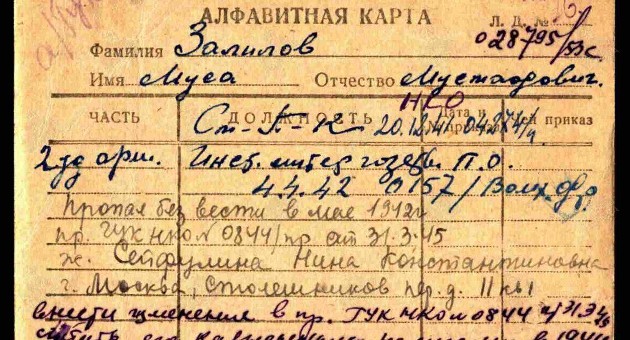 АЛФАВИТНАЯ КАРТА
Л. Д. №
028795/53с
Фамилия Залилов
Имя Муса Отчество Мустафович.
НКО
ЧАСТЬ ДОЛЖНОСТЬ Дата и чей приказ
Ст-П-К 20.12.41 04274/п
2 уд арм. Инст. литер П.О.
4.4.42 0157/Волх. фр.
Пропал без вести в мае 1942г
пр. ГУК НКО №0844/пр от 31.3.45
ж. Сейфулина Нина Константиновна
г. Москва, Столешников пер. д. 11 кв1
внести изменение в пр. ГУК НКО №0844 31.3.45
в 1944